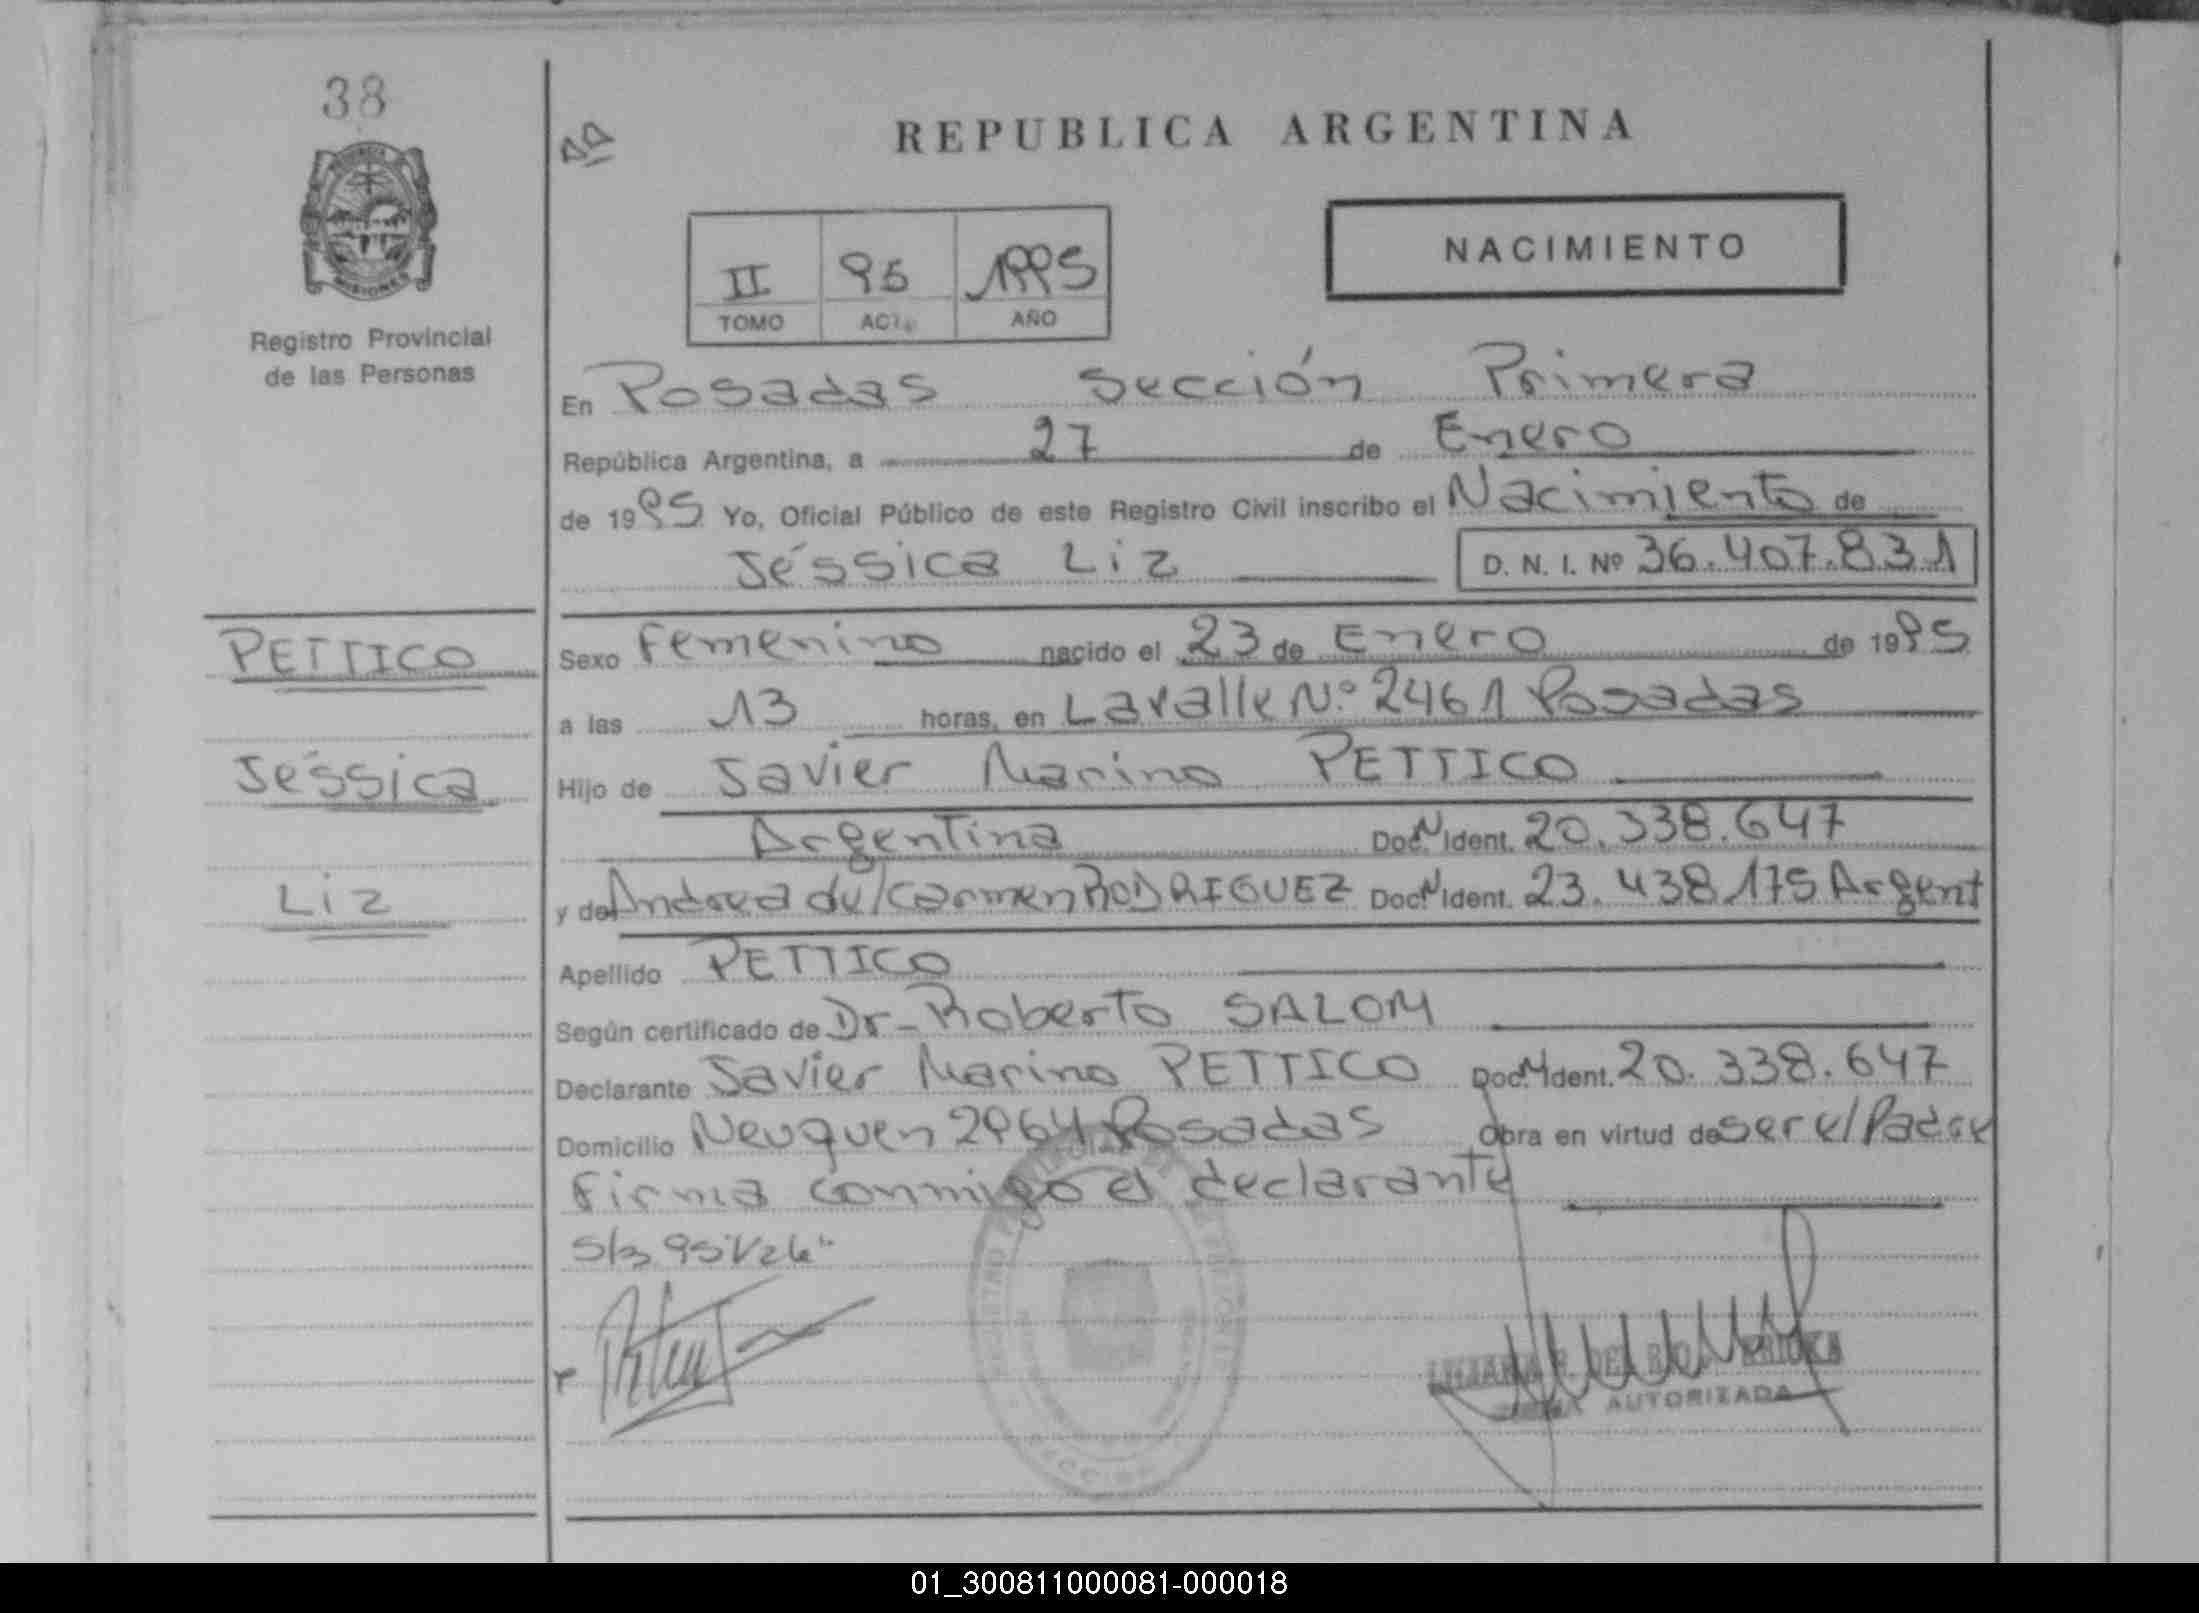 38
REPUBLICA ARGENTINA
NACIMIENTO
II 95 1995
TOMO ACTA AÑO
MISIONES
Registro Provincial
de las Personas
En Posadas Sección Primera
República Argentina, a 27 de Enero
de 1995 Yo, Oficial Público de este Registro Civil inscribo el Nacimiento de
Jéssica Liz D. N. I. Nº 36.407.831
PETTICO
Sexo Femenino nacido el 23 de Enero de 1995
a las 13 horas, en Lavalle N.º 2461 Posadas
Jéssica
Hijo de Javier Marino PETTICO
Argentina Doc. N Ident. 20.338.647
Liz
y de Andrea del Carmen RODRIGUEZ Doc. N Ident. 23.438.175 Argent
Apellido PETTICO
Según certificado de Dr. Roberto SALOM
Declarante Javier Marino PETTICO Doc. N Ident. 20.338.647
Domicilio Neuquen 2964 Posadas Obra en virtud de ser el Padre
Firma conmigo el declarante
AUTORIZADA
01_300811000081-000018